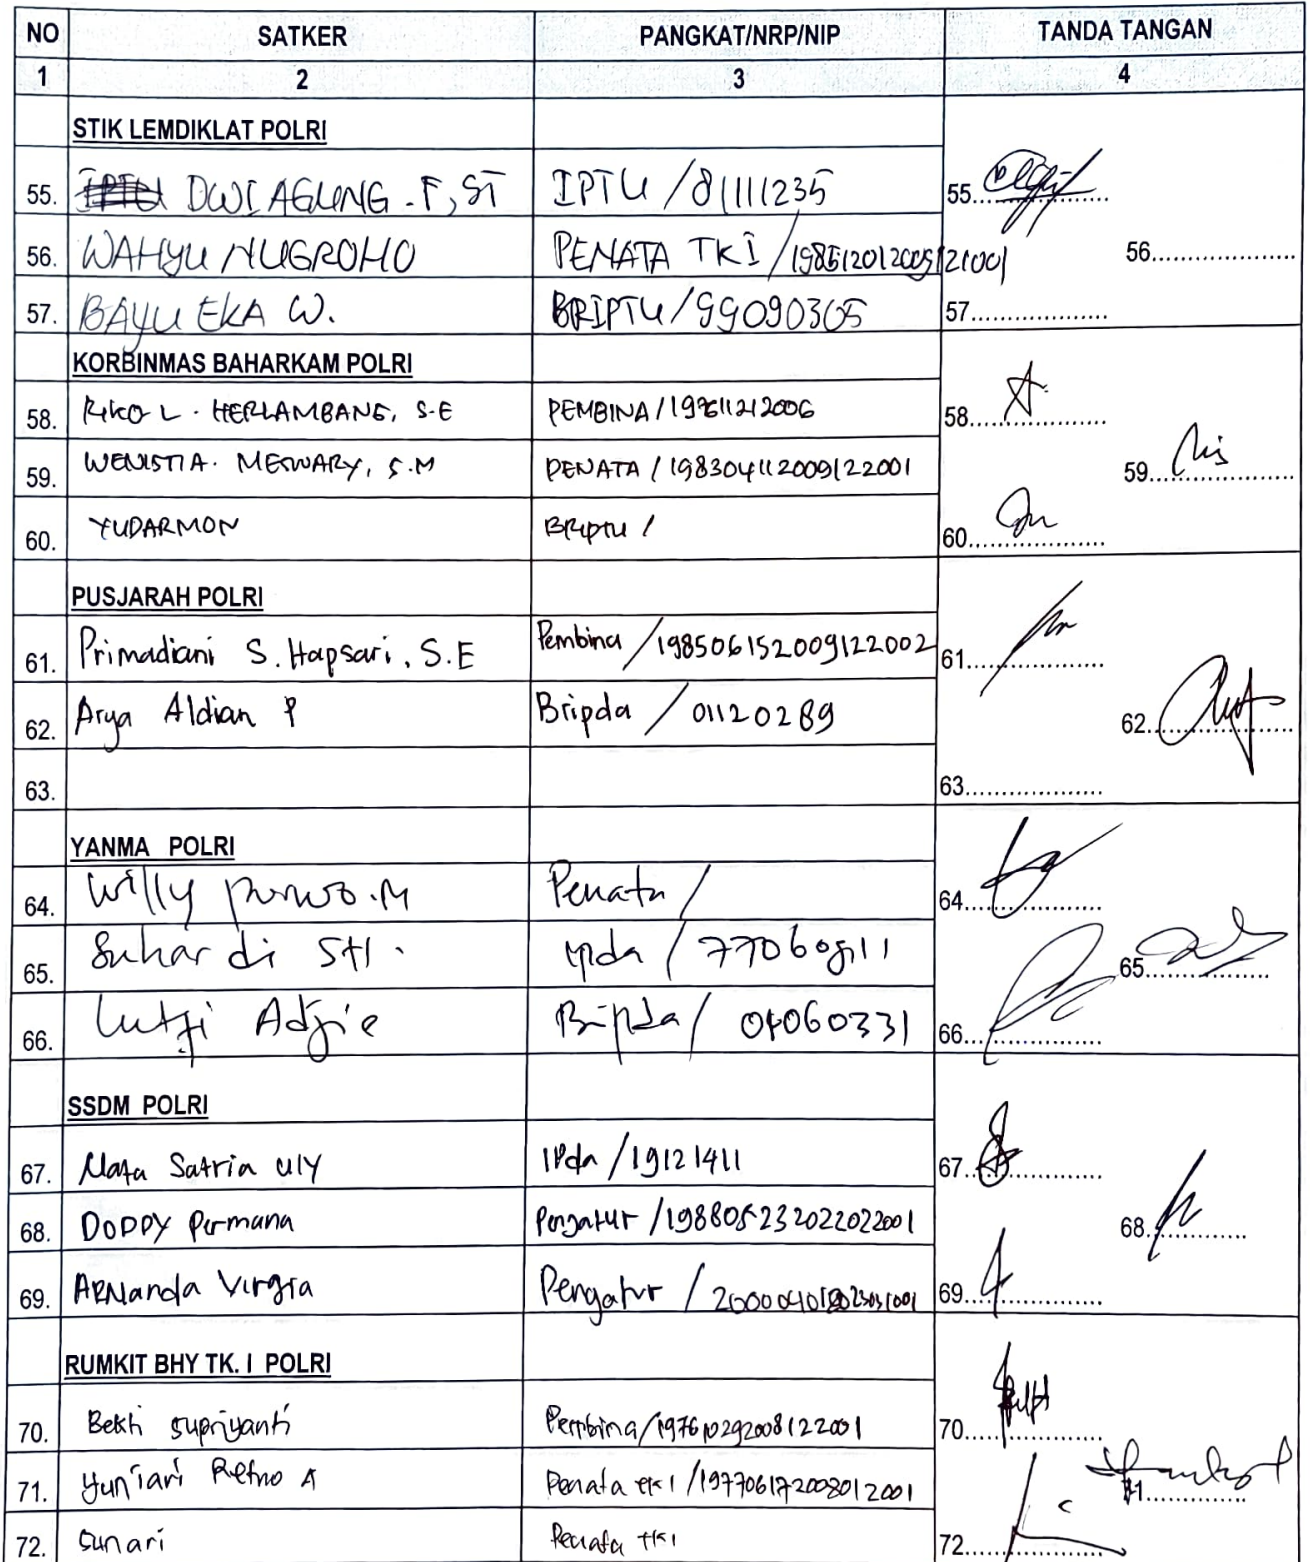 NO SATKER PANGKAT/NRP/NIP TANDA TANGAN
1 2 3 4
STIK LEMDIKLAT POLRI
55. DWI AGUNG . F, ST IPTU /81111235 55..................
56. WAHYU NUGROHO PENATA TKI / 56..................
57. BAYU EKA W. BRIPTU/99090305 57..................
KORBINMAS BAHARKAM POLRI
58. RIKO L. HERLAMBANG, S.E PEMBINA / 58..................
59. WENISTIA. MESWARY, S.M PENATA / 198304112009122001 59..................
60. YUDARMON BRIPTU / 60..................
PUSJARAH POLRI
61. Primadiani S. Hapsari, S.E Pembina /198506152009122002 61..................
62. Arya Aldian P Bripda / 01120289 62..................
63. 63..................
YANMA POLRI
64. Willy Purwo.M Penata / 64..................
65. Suhardi SH. Ipda / 65..................
66. Lutfi Adjie Bripda / 66..................
SSDM POLRI
67. Satria Uly Ipda /19121411 67..................
68. DODDY Permana Pengatur /198805232022022001 68..................
69. ARNanda Virgia Pengatur / 69..................
RUMKIT BHY TK. I POLRI
70. Bekti Supriyanti Pembina/197610292008122001 70..................
71. Yuniari Retno A Penata TK I /197706172008012001 71..................
72. Sunari Penata TK I 72..................